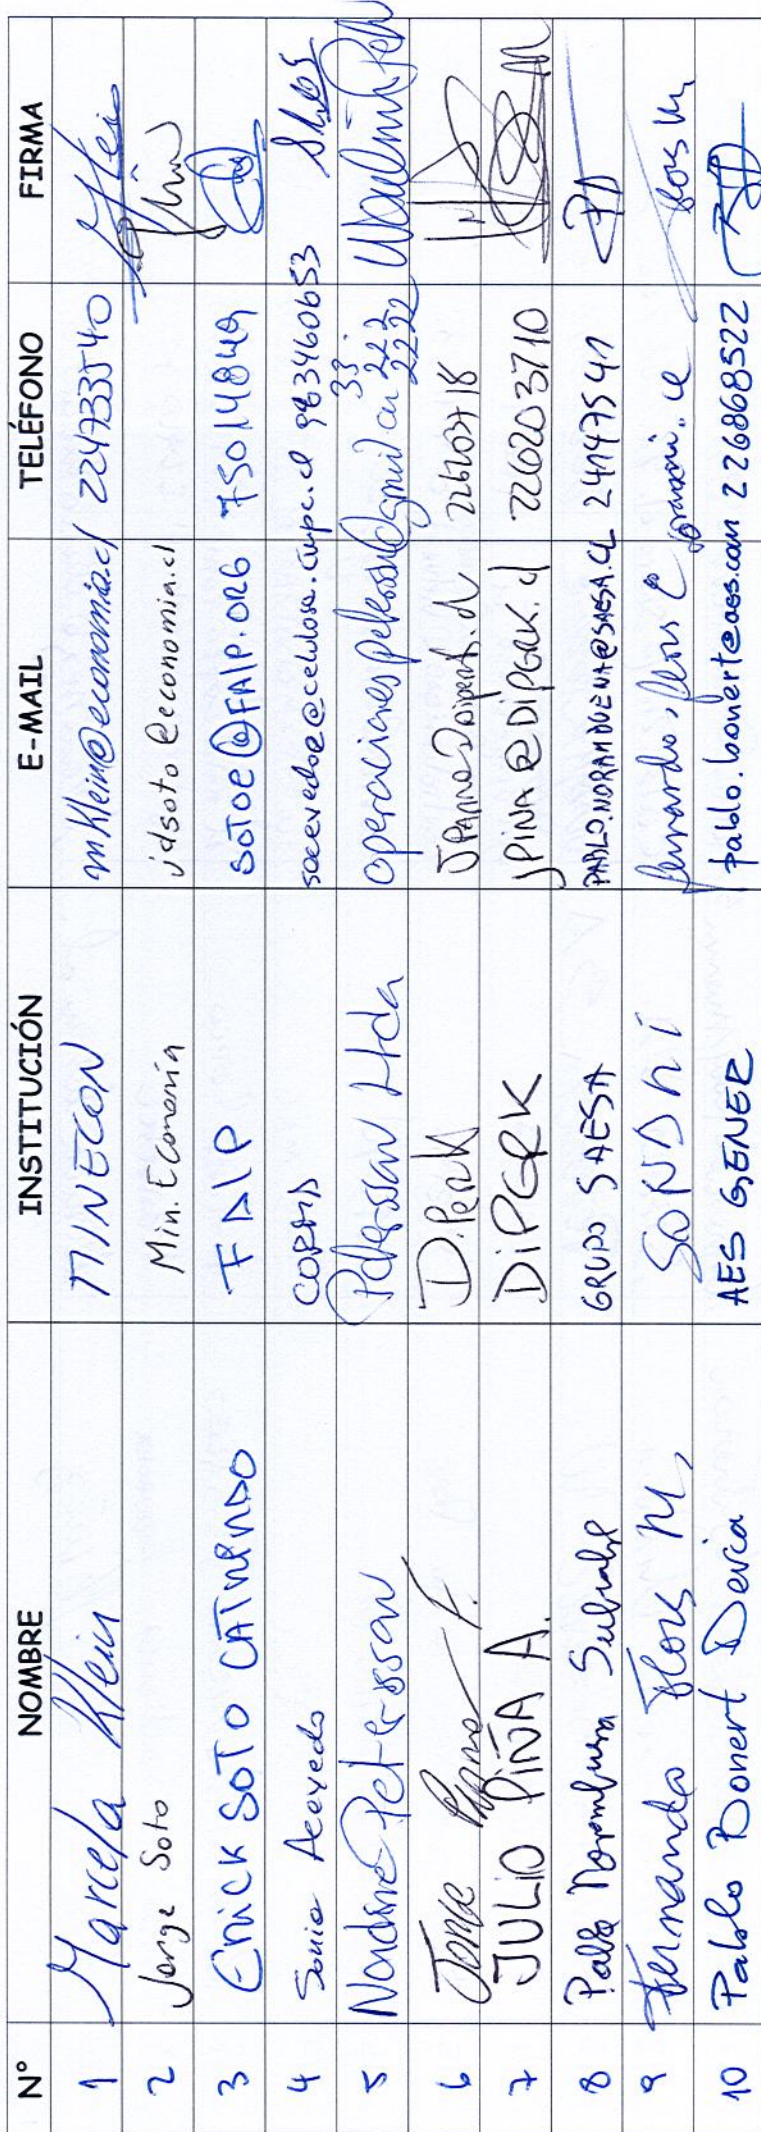 N° NOMBRE INSTITUCIÓN E-MAIL TELÉFONO FIRMA
1 Marcela Klein MINECON mklein@economia.cl 224733540
2 Jorge Soto Min. Economía jdsoto@economia.cl
3 Erick SOTO CATRINAO FAIP SOTOE@FAIP.ORG 75014849
4 Sonia Acevedo CORMA sacevedo@celulosa.cmpc.cl 983460653
5 Nadine Peterssen Peterssen Ltda
6 Jorge DIPERK
7 JULIO PIÑA A. DIPERK JPINA@DIPERK.cl 226203710
8 Pablo Norambuena Subiabre GRUPO SAESA PABLO.NORAMBUENA@SAESA.CL 24147541
9 Fernando Flores M,
10 Pablo Bonert Devia AES GENER pablo.bonert@aes.com 226868522